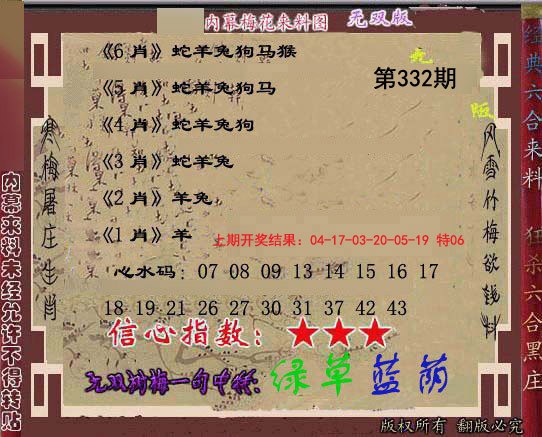 内幕梅花来料图 无双版
《6 肖》蛇羊兔狗马猴
第332期
《5 肖》蛇羊兔狗马
《4 肖》蛇羊兔狗
《3 肖》蛇羊兔
《2 肖》羊兔
《1 肖》羊
上期开奖结果：04-17-03-20-05-19 特06
心水码：07 08 09 13 14 15 16 17
18 19 21 26 27 30 31 37 42 43
信心指数：★★★
无双剑梅一句中特：绿草蓝荫
寒梅屠庄生肖
风雪竹梅欲钱料
内幕来料未经允许不得转贴
经典六合来料
狂杀六合黑庄
版权所有 翻版必究